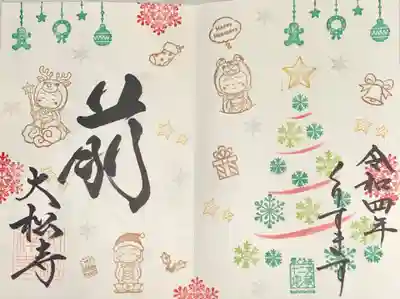 令和四年
くりすます
Happy
Holidays
大松寺